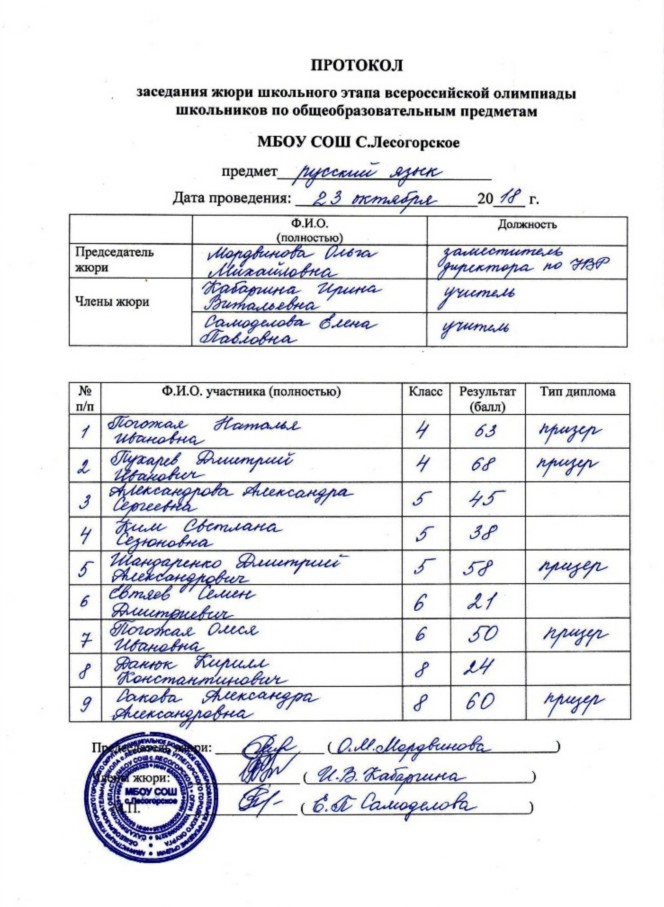 ПРОТОКОЛ
заседания жюри школьного этапа всероссийской олимпиады
школьников по общеобразовательным предметам
МБОУ СОШ С.Лесогорское
предмет русский язык
Дата проведения: 23 октября 2018 г.
Ф.И.О. (полностью) Должность
Председатель жюри Мордвинова Ольга Михайловна заместитель директора по УВР
Члены жюри Кабаргина Ирина Витальевна учитель
Самоделова Елена Павловна учитель
№ п/п Ф.И.О. участника (полностью) Класс Результат (балл) Тип диплома
1 Погожая Наталья Ивановна 4 63 призер
2 Пухарев Дмитрий Иванович 4 68 призер
3 Александрова Александра Сергеевна 5 45
4 Ким Светлана Сезюновна 5 38
5 Шандаренко Дмитрий Александрович 5 58 призер
6 Евтяев Семен Дмитриевич 6 21
7 Погожая Олеся Ивановна 6 50 призер
8 Данюк Кирилл Константинович 8 24
9 Сакова Александра Александровна 8 60 призер
Председатель жюри: (О.М.Мордвинова)
Члены жюри: (И.В.Кабаргина)
М.П. (Е.П Самоделова)
МБОУ СОШ
с.Лесогорское